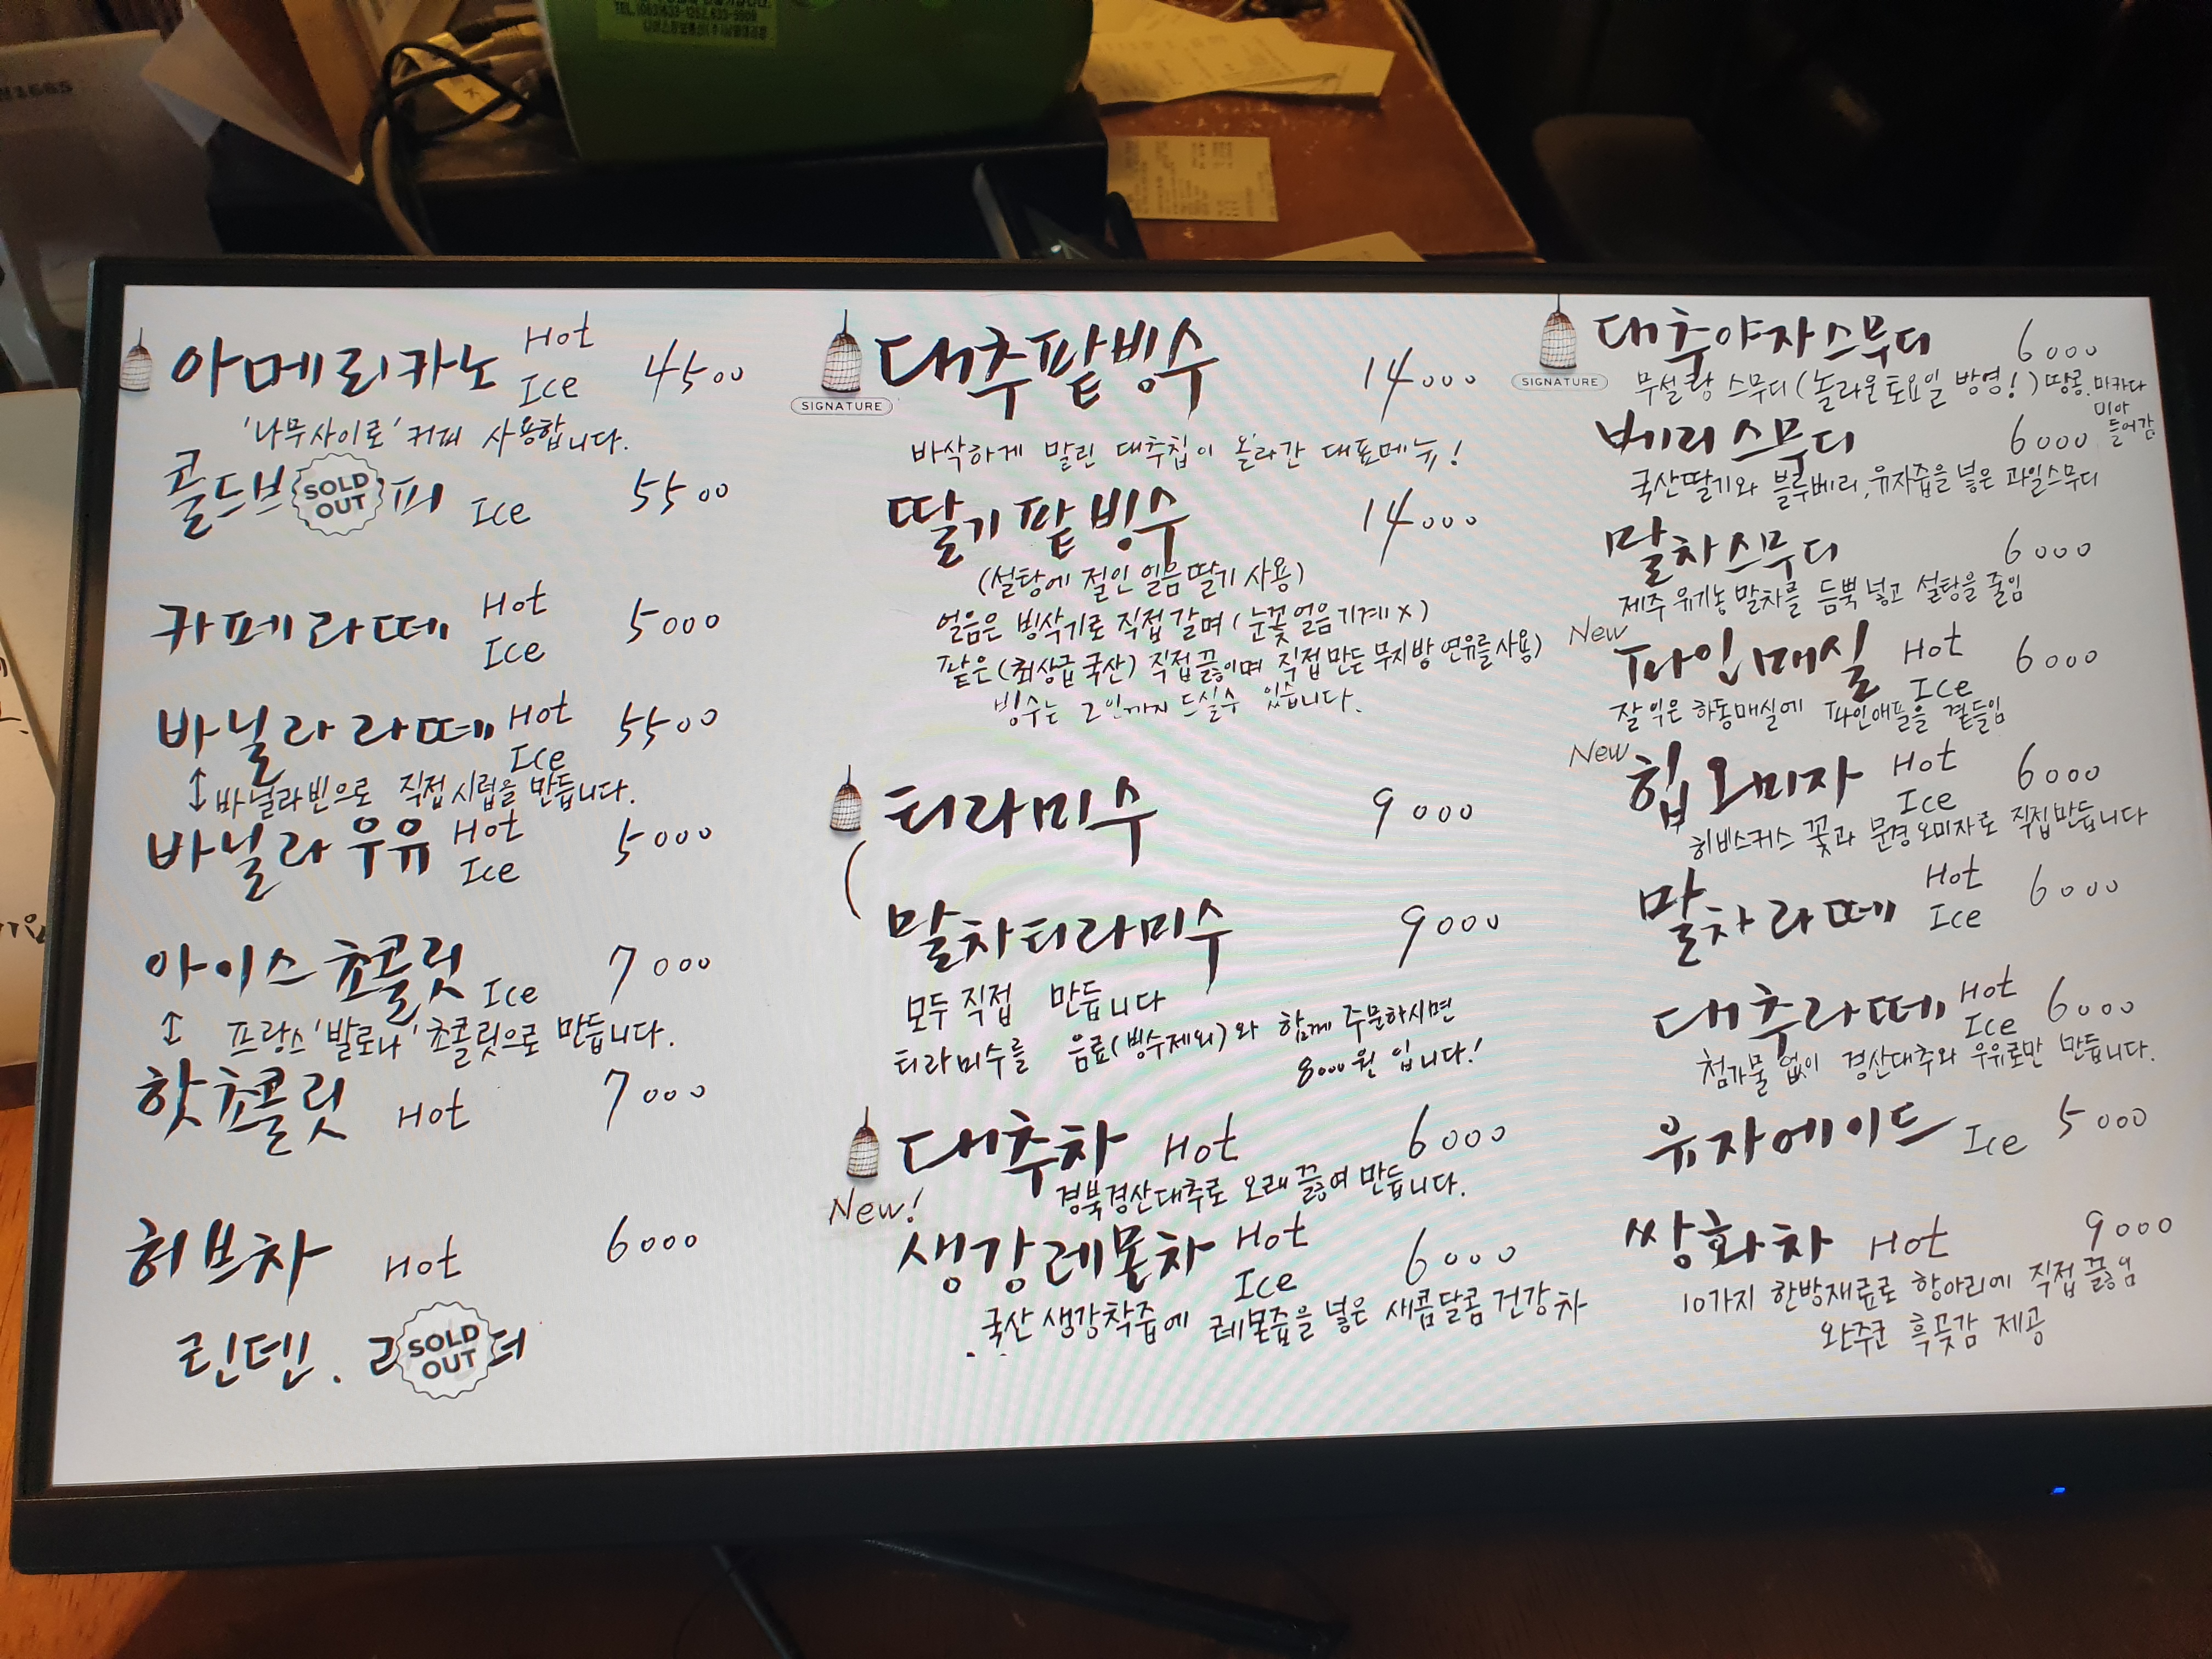 아메리카노 Hot Ice 4500
'나무사이로' 커피 사용합니다.
콜드브 SOLD OUT 피 Ice 5500
카페라떼 Hot Ice 5000
바닐라라떼 Hot Ice 5500
↕ 바닐라빈으로 직접 시럽을 만듭니다.
바닐라우유 Hot Ice 5000
아이스쵸콜릿 Ice 7000
↕ 프랑스 '발로나' 초콜릿으로 만듭니다.
핫쵸콜릿 Hot 7000
허브차 Hot 6000
린덴. SOLD OUT
SIGNATURE
대추팥빙수 14000
바삭하게 말린 대추칩이 올라간 대표메뉴!
딸기팥빙수 14000
(설탕에 절인 얼음딸기 사용)
얼음은 빙삭기로 직접 갈며 (눈꽃얼음기계 X)
팥은 (최상급 국산) 직접 끓이며 직접 만든 무지방 연유를 사용)
빙수는 2인까지 드실수 있습니다.
티라미수 9000
말차티라미수 9000
모두 직접 만듭니다
티라미수를 음료(빙수제외)와 함께 주문하시면
8000원 입니다!
대추차 Hot 6000
경북경산대추로 오래 끓여 만듭니다.
New!
생강레몬차 Hot Ice 6000
국산 생강착즙에 레몬즙을 넣은 새콤달콤 건강차
SIGNATURE
대추야자스무디 6000
무설탕 스무디 (놀라운토요일 방영!) 땅콩, 마카다
미아
들어감
베리스무디 6000
국산딸기와 블루베리, 유자즙을 넣은 과일스무디
말차스무디 6000
제주 유기농 말차를 듬뿍 넣고 설탕을 줄임
New
파인매실 Hot Ice 6000
잘 익은 하동매실에 파인애플을 곁들임
New
힙오미자 Hot Ice 6000
히비스커스 꽃과 문경오미자로 직접만듭니다
말차라떼 Hot Ice 6000
대추라떼 Hot Ice 6000
첨가물 없이 경산대추와 우유로만 만듭니다.
유자에이드 Ice 5000
쌍화차 Hot 9000
10가지 한방재료로 항아리에 직접 끓임
완주군 흑곶감 제공